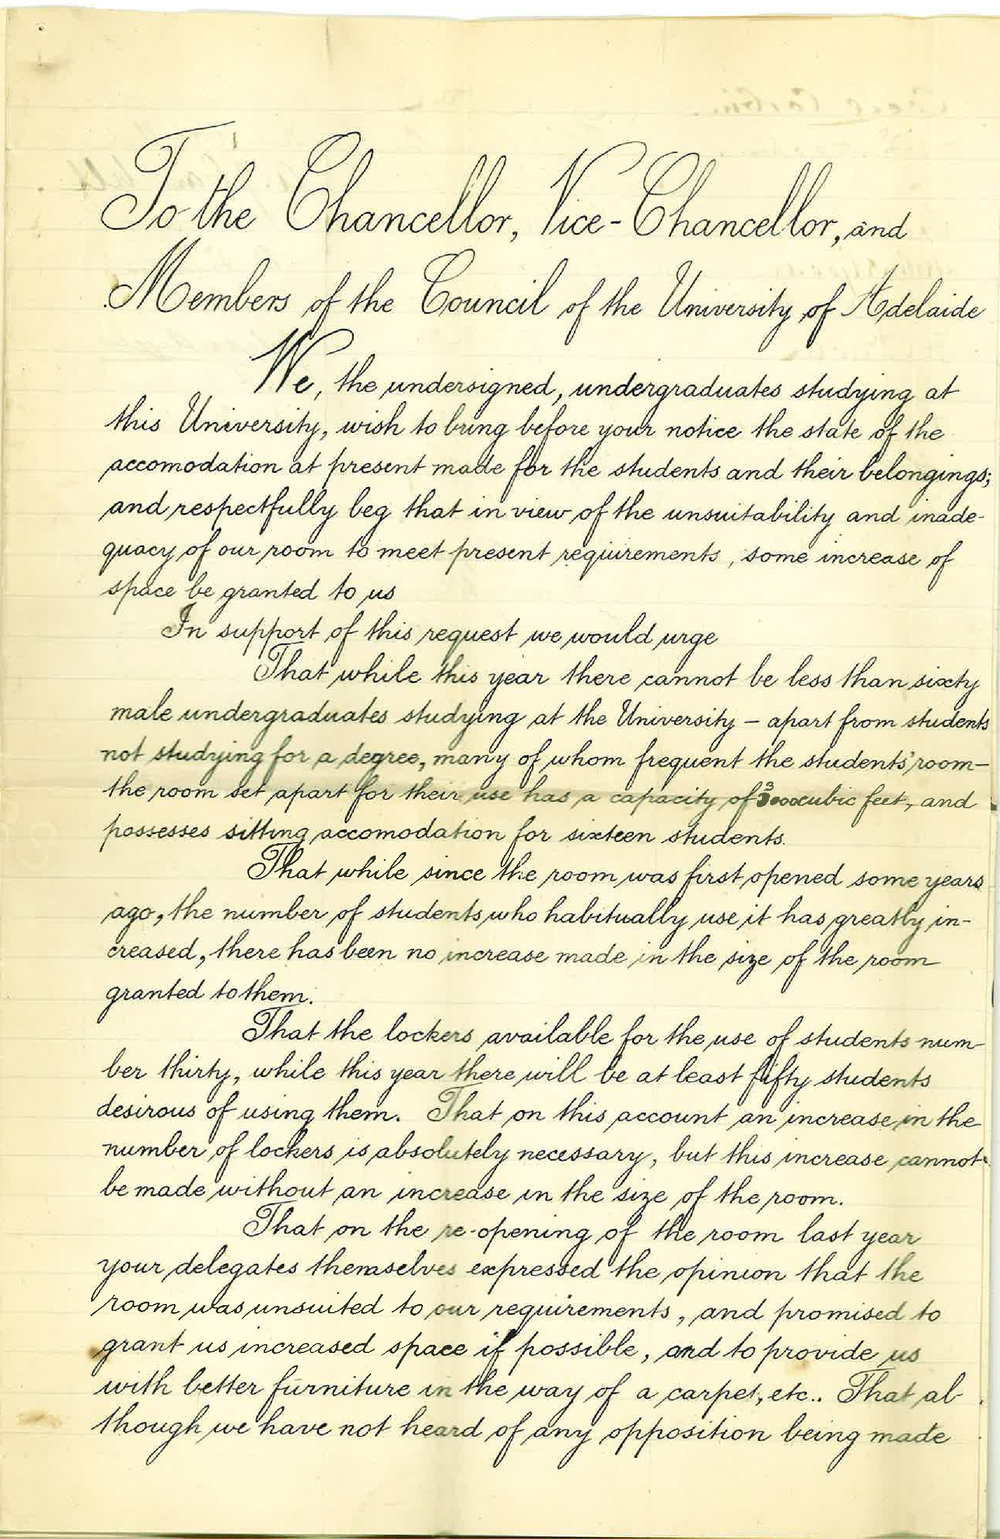 To the Chancellor, Vice-Chancellor, and
Members of the Council of the University of Adelaide
We, the undersigned, undergraduates studying at
this University, wish to bring before your notice the state of the
accomodation at present made for the students and their belongings;
and respectfully beg that in view of the unsuitability and inade-
quacy of our room to meet present requirements, some increase of
space be granted to us
In support of this request we would urge
That while this year there cannot be less than sixty
male undergraduates studying at the University – apart from students
not studying for a degree, many of whom frequent the students' room –
the room set apart for their use has a capacity of 3000 cubic feet, and
possesses sitting accomodation for sixteen students.
That while since the room was first opened some years
ago, the number of students who habitually use it has greatly in-
creased, there has been no increase made in the size of the room
granted to them.
That the lockers available for the use of students num-
ber thirty, while this year there will be at least fifty students
desirous of using them. That on this account an increase in the
number of lockers is absolutely necessary, but this increase cannot
be made without an increase in the size of the room.
That on the re-opening of the room last year
your delegates themselves expressed the opinion that the
room was unsuited to our requirements, and promised to
grant us increased space if possible, and to provide us
with better furniture in the way of a carpet, etc.. That al-
though we have not heard of any opposition being made